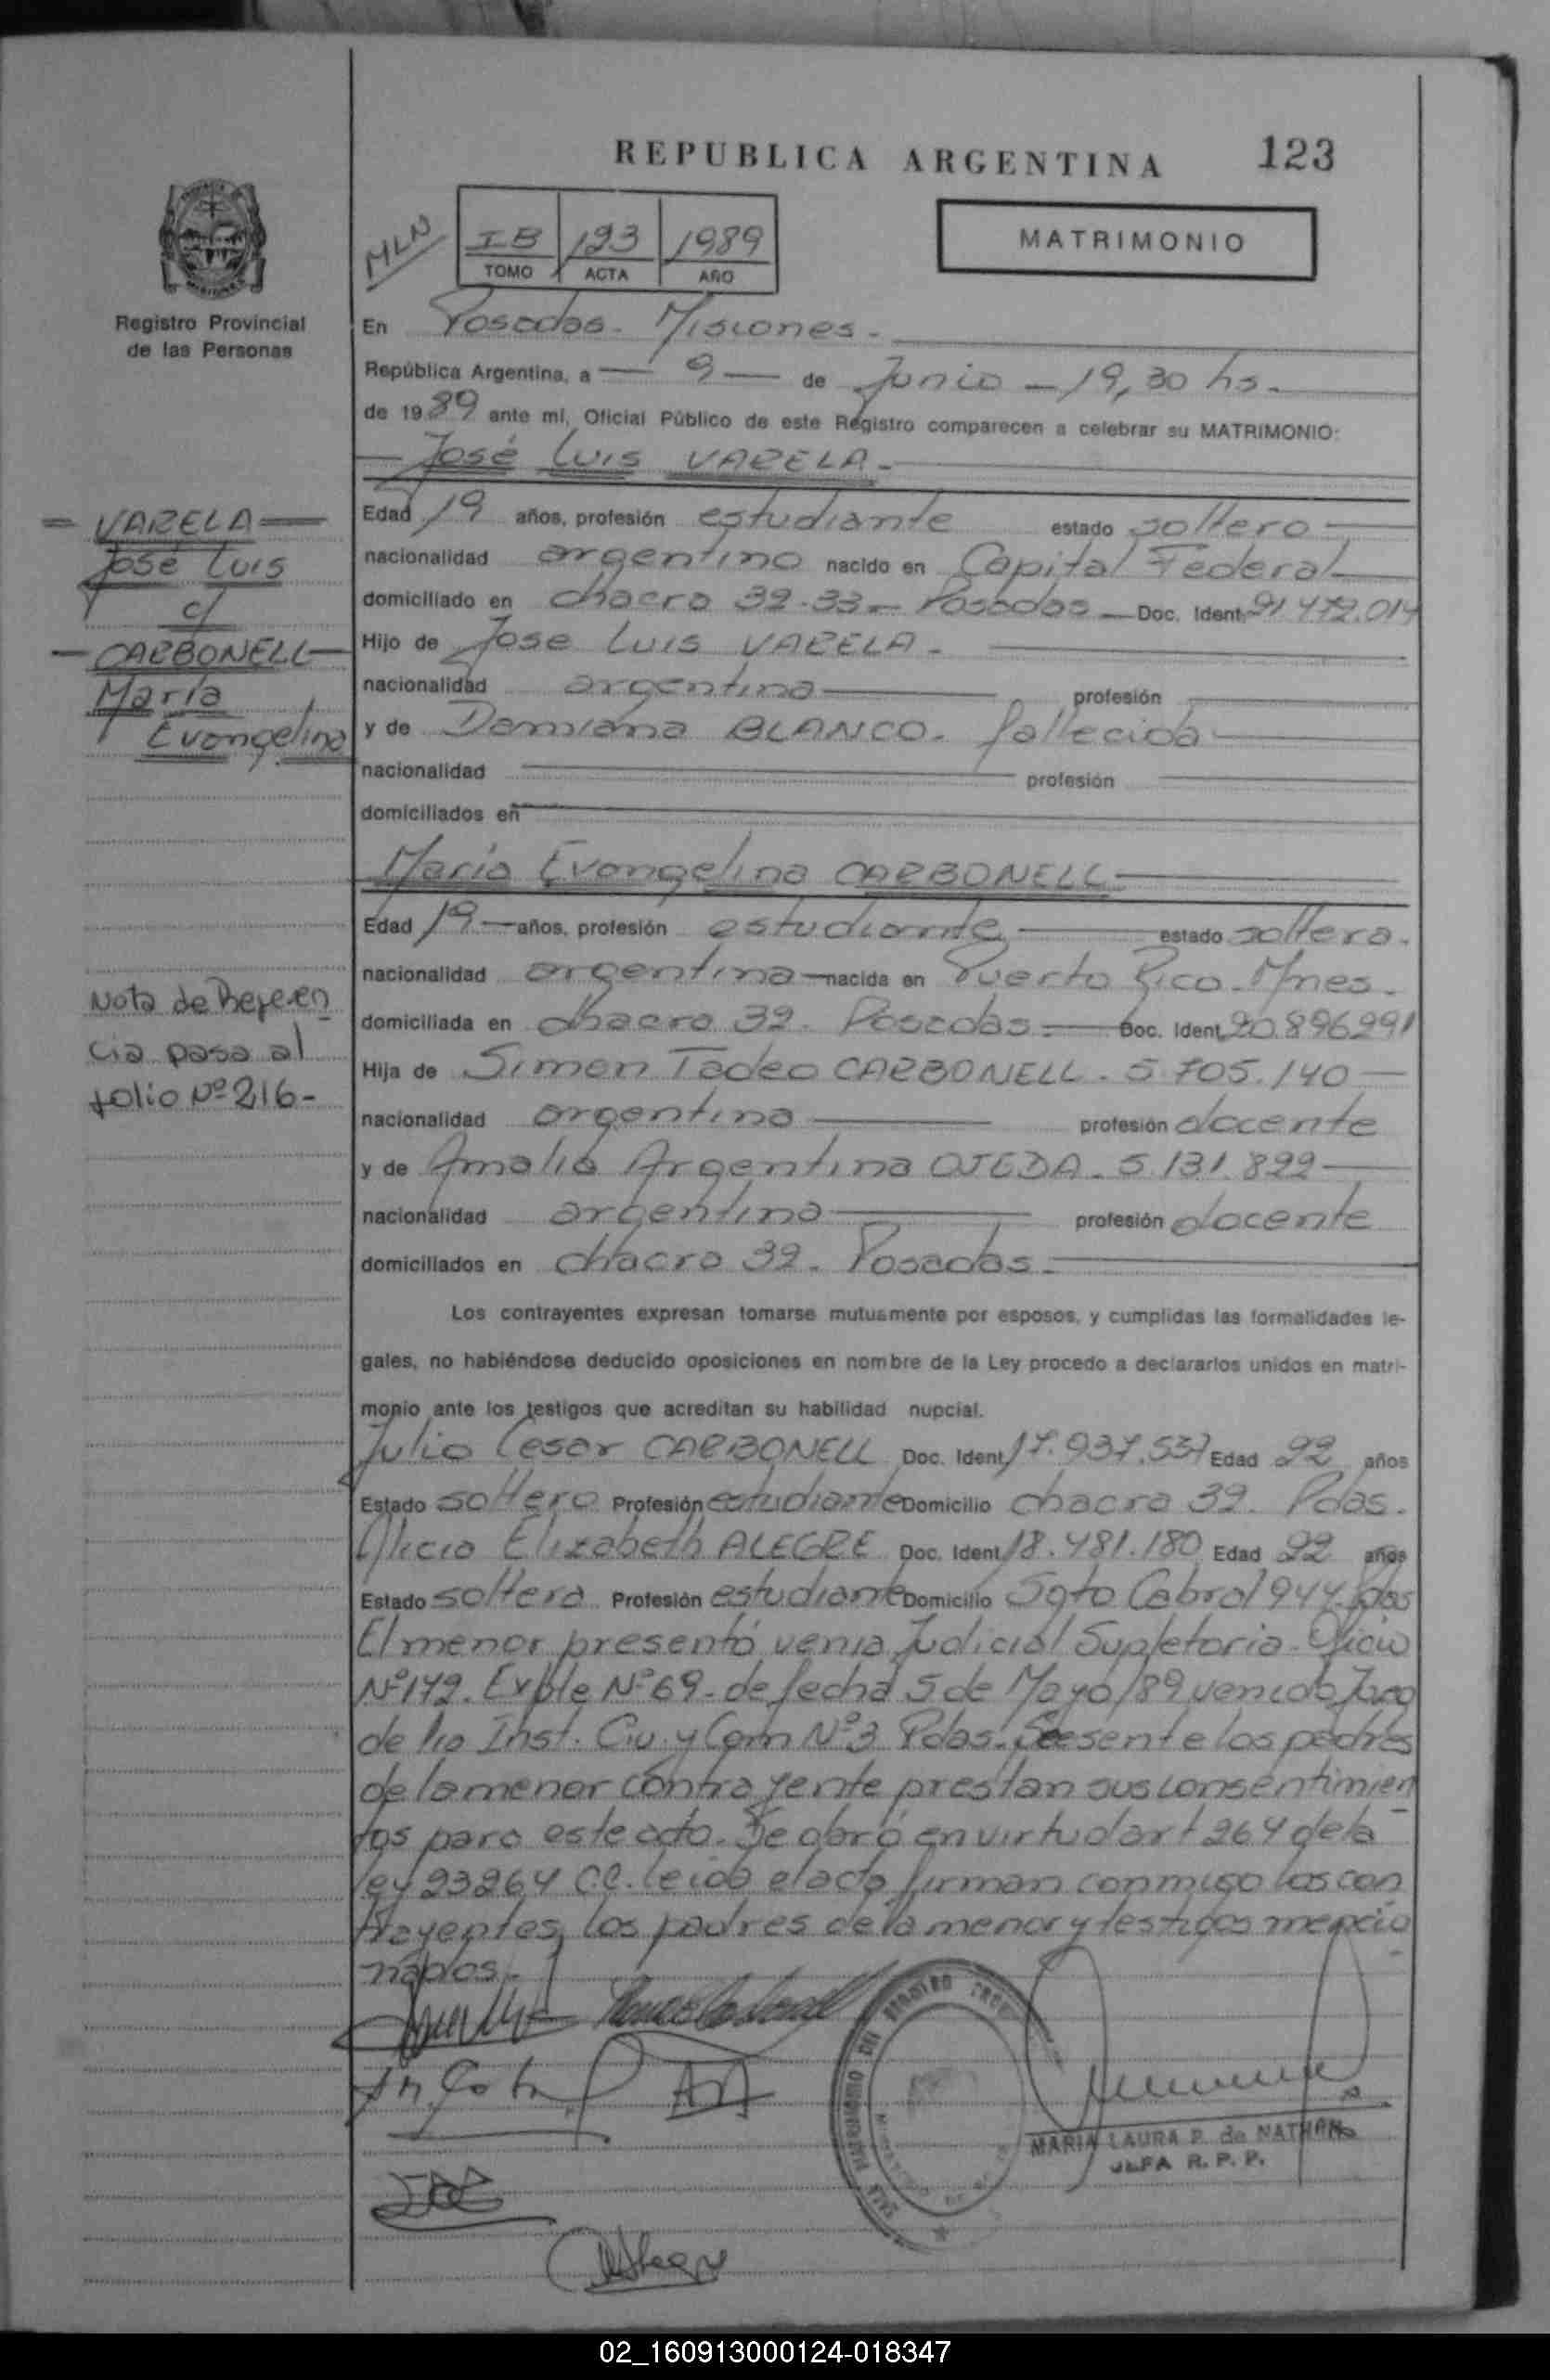 REPUBLICA ARGENTINA
123
MLN
IB 123 1989
TOMO ACTA AÑO
MATRIMONIO
Registro Provincial
de las Personas
En Posadas - Misiones -
República Argentina, a — 9 — de Junio - 19,30 hs.
de 1989 ante mí, Oficial Público de este Registro comparecen a celebrar su MATRIMONIO:
José Luis VARELA -
Edad 19 años, profesión estudiante estado soltero
nacionalidad argentino nacido en Capital Federal
domiciliado en chacra 32-33 - Posadas - Doc. Ident. 21 472.014
Hijo de Jose Luis VARELA -
nacionalidad argentina profesión
y de Damiana BLANCO. fallecida
nacionalidad profesión
domiciliados en
María Evangelina CARBONELL
Edad 19 años, profesión estudiante estado soltera.
nacionalidad argentina nacida en Puerto Rico - Mnes.
domiciliada en chacra 32. Posadas Doc. Ident. 20.896291
Hija de Simon Tadeo CARBONELL. 5.705.140
nacionalidad argentina profesión docente
y de Amalia Argentina OJEDA. 5.131.822
nacionalidad argentina profesión docente
domiciliados en chacra 32. Posadas
Los contrayentes expresan tomarse mutuamente por esposos, y cumplidas las formalidades le-
gales, no habiéndose deducido oposiciones en nombre de la Ley procedo a declararlos unidos en matri-
monio ante los testigos que acreditan su habilidad nupcial.
Julio Cesar CARBONELL Doc. Ident. 17.937.537 Edad 22 años
Estado soltero Profesión estudiante Domicilio chacra 32. Pdas.
Alicia Elizabeth ALEGRE Doc. Ident. 18.481.180 Edad 22 años
Estado soltera Profesión estudiante Domicilio Sgto Cabral 944. Pdas
El menor presentó venia Judicial Supletoria - Oficio
Nº 172. Expte Nº 69 - de fecha 5 de Mayo/89 venido Jzgo
de 1ra Inst. Civ. y Com Nº 3 Pdas. Presente los padres
de la menor contrayente prestan sus consentimien
tos para este acto. Se obró en virtud art 264 de la
ley 23264 C.C. leida el acta firman conmigo los con
trayentes, los padres de la menor y testigos mencio
nados.
VARELA
José Luis
c/
CARBONELL
María
Evangelina
Nota de Referen
cia pasa al
folio Nº 216 -
MARIA LAURA P. de NATHAN
JEFA R. P. P.
02_160913000124-018347